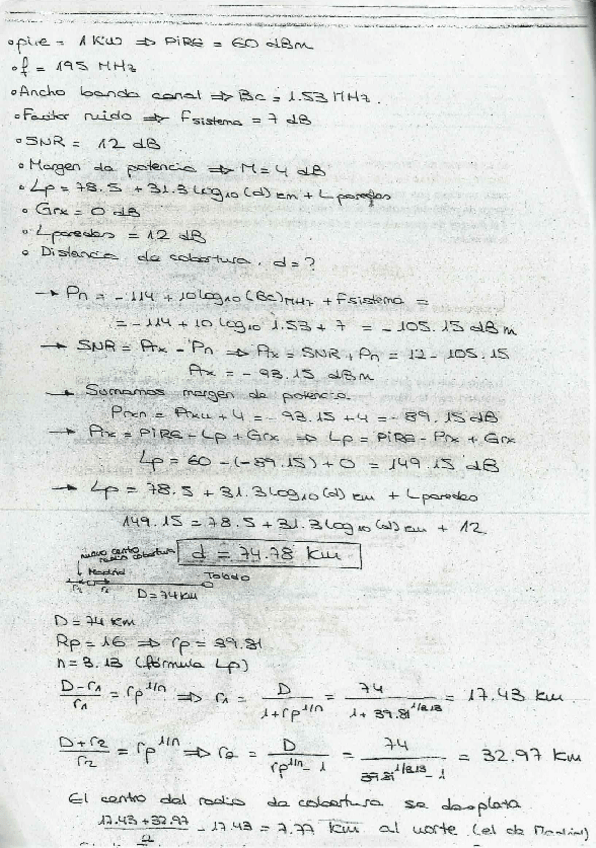 • pire = 1 KW ⇒ PiRE = 60 dBm
• f = 195 MHz
• Ancho banda canal ⇒ Bc = 1.53 MHz.
• Factor ruido ⇒ Fsistema = 7 dB
• SNR = 12 dB
• Margen da potencia ⇒ M = 4 dB
• Lp = 78.5 + 31.3 log10 (d) km + L paredes
• Grx = 0 dB
• Lparedes = 12 dB
• Distancia de cobertura. d = ?
→ Pn = -114 + 10 log10 (Bc)MHz + Fsistema =
= -114 + 10 log10 1.53 + 7 = -105.15 dBm
→ SNR = Prx - Pn ⇒ Prx = SNR + Pn = 12 - 105.15
Prx = -93.15 dBm
→ Sumamos margen de potencia.
Prxn = Prxu + 4 = -93.15 + 4 = -89.15 dB
→ Prx = PiRE - Lp + Grx ⇒ Lp = PiRE - Prx + Grx
Lp = 60 - (-89.15) + 0 = 149.15 dB
→ Lp = 78.5 + 31.3 log10 (d) km + Lparedes
149.15 = 78.5 + 31.3 log10 (d) km + 12
nuevo centro
radio cobertura
d = 74.78 km
Madrid
Toledo
r1 r2
D = 74 km
D = 74 km
Rp = 16 ⇒ rp = 39.81
n = 3.13 (fórmula Lp)
D - r1 / r1 = rp^1/n ⇒ r1 = D / 1 + rp^1/n = 74 / 1 + 39.81^1/3.13 = 17.43 km.
D + r2 / r2 = rp^1/n ⇒ r2 = D / rp^1/n - 1 = 74 / 39.81^1/3.13 - 1 = 32.97 km
El centro del radio da cobertura se desplaza
17.43 + 32.97 / 2 - 17.43 = 7.77 km al norte (el de Madrid)